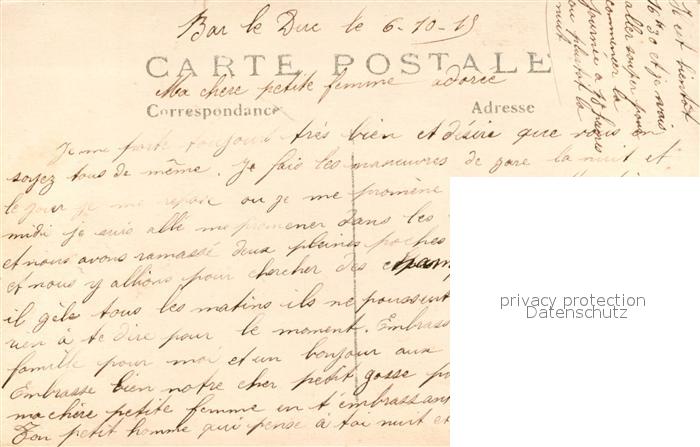 Bar le Duc le 6-10-15
CARTE POSTALE
Ma chère petite femme adorée
Correspondance
Adresse
Je me porte toujours très bien et désire que vous en
soyez tous de même. Je fais les manœuvres de gare la nuit et
le jour je me repose ou je me promène
midi je suis allé me promener dans les
et nous avons ramassé deux pleines poches
et nous y allions pour chercher des champ
il gèle tous les matins ils ne poussent
rien à te dire pour le moment. Embrass
famille pour moi et un bonjour aux
Embrasse bien notre cher petit gosse po
ma chère petite femme en t'embrassant
Ton petit homme qui pense à toi nuit et
Il est bientôt
et je vais
aller souper pour
commencer la
journée à heures
ou plustôt la
nuit
privacy protection
Datenschutz